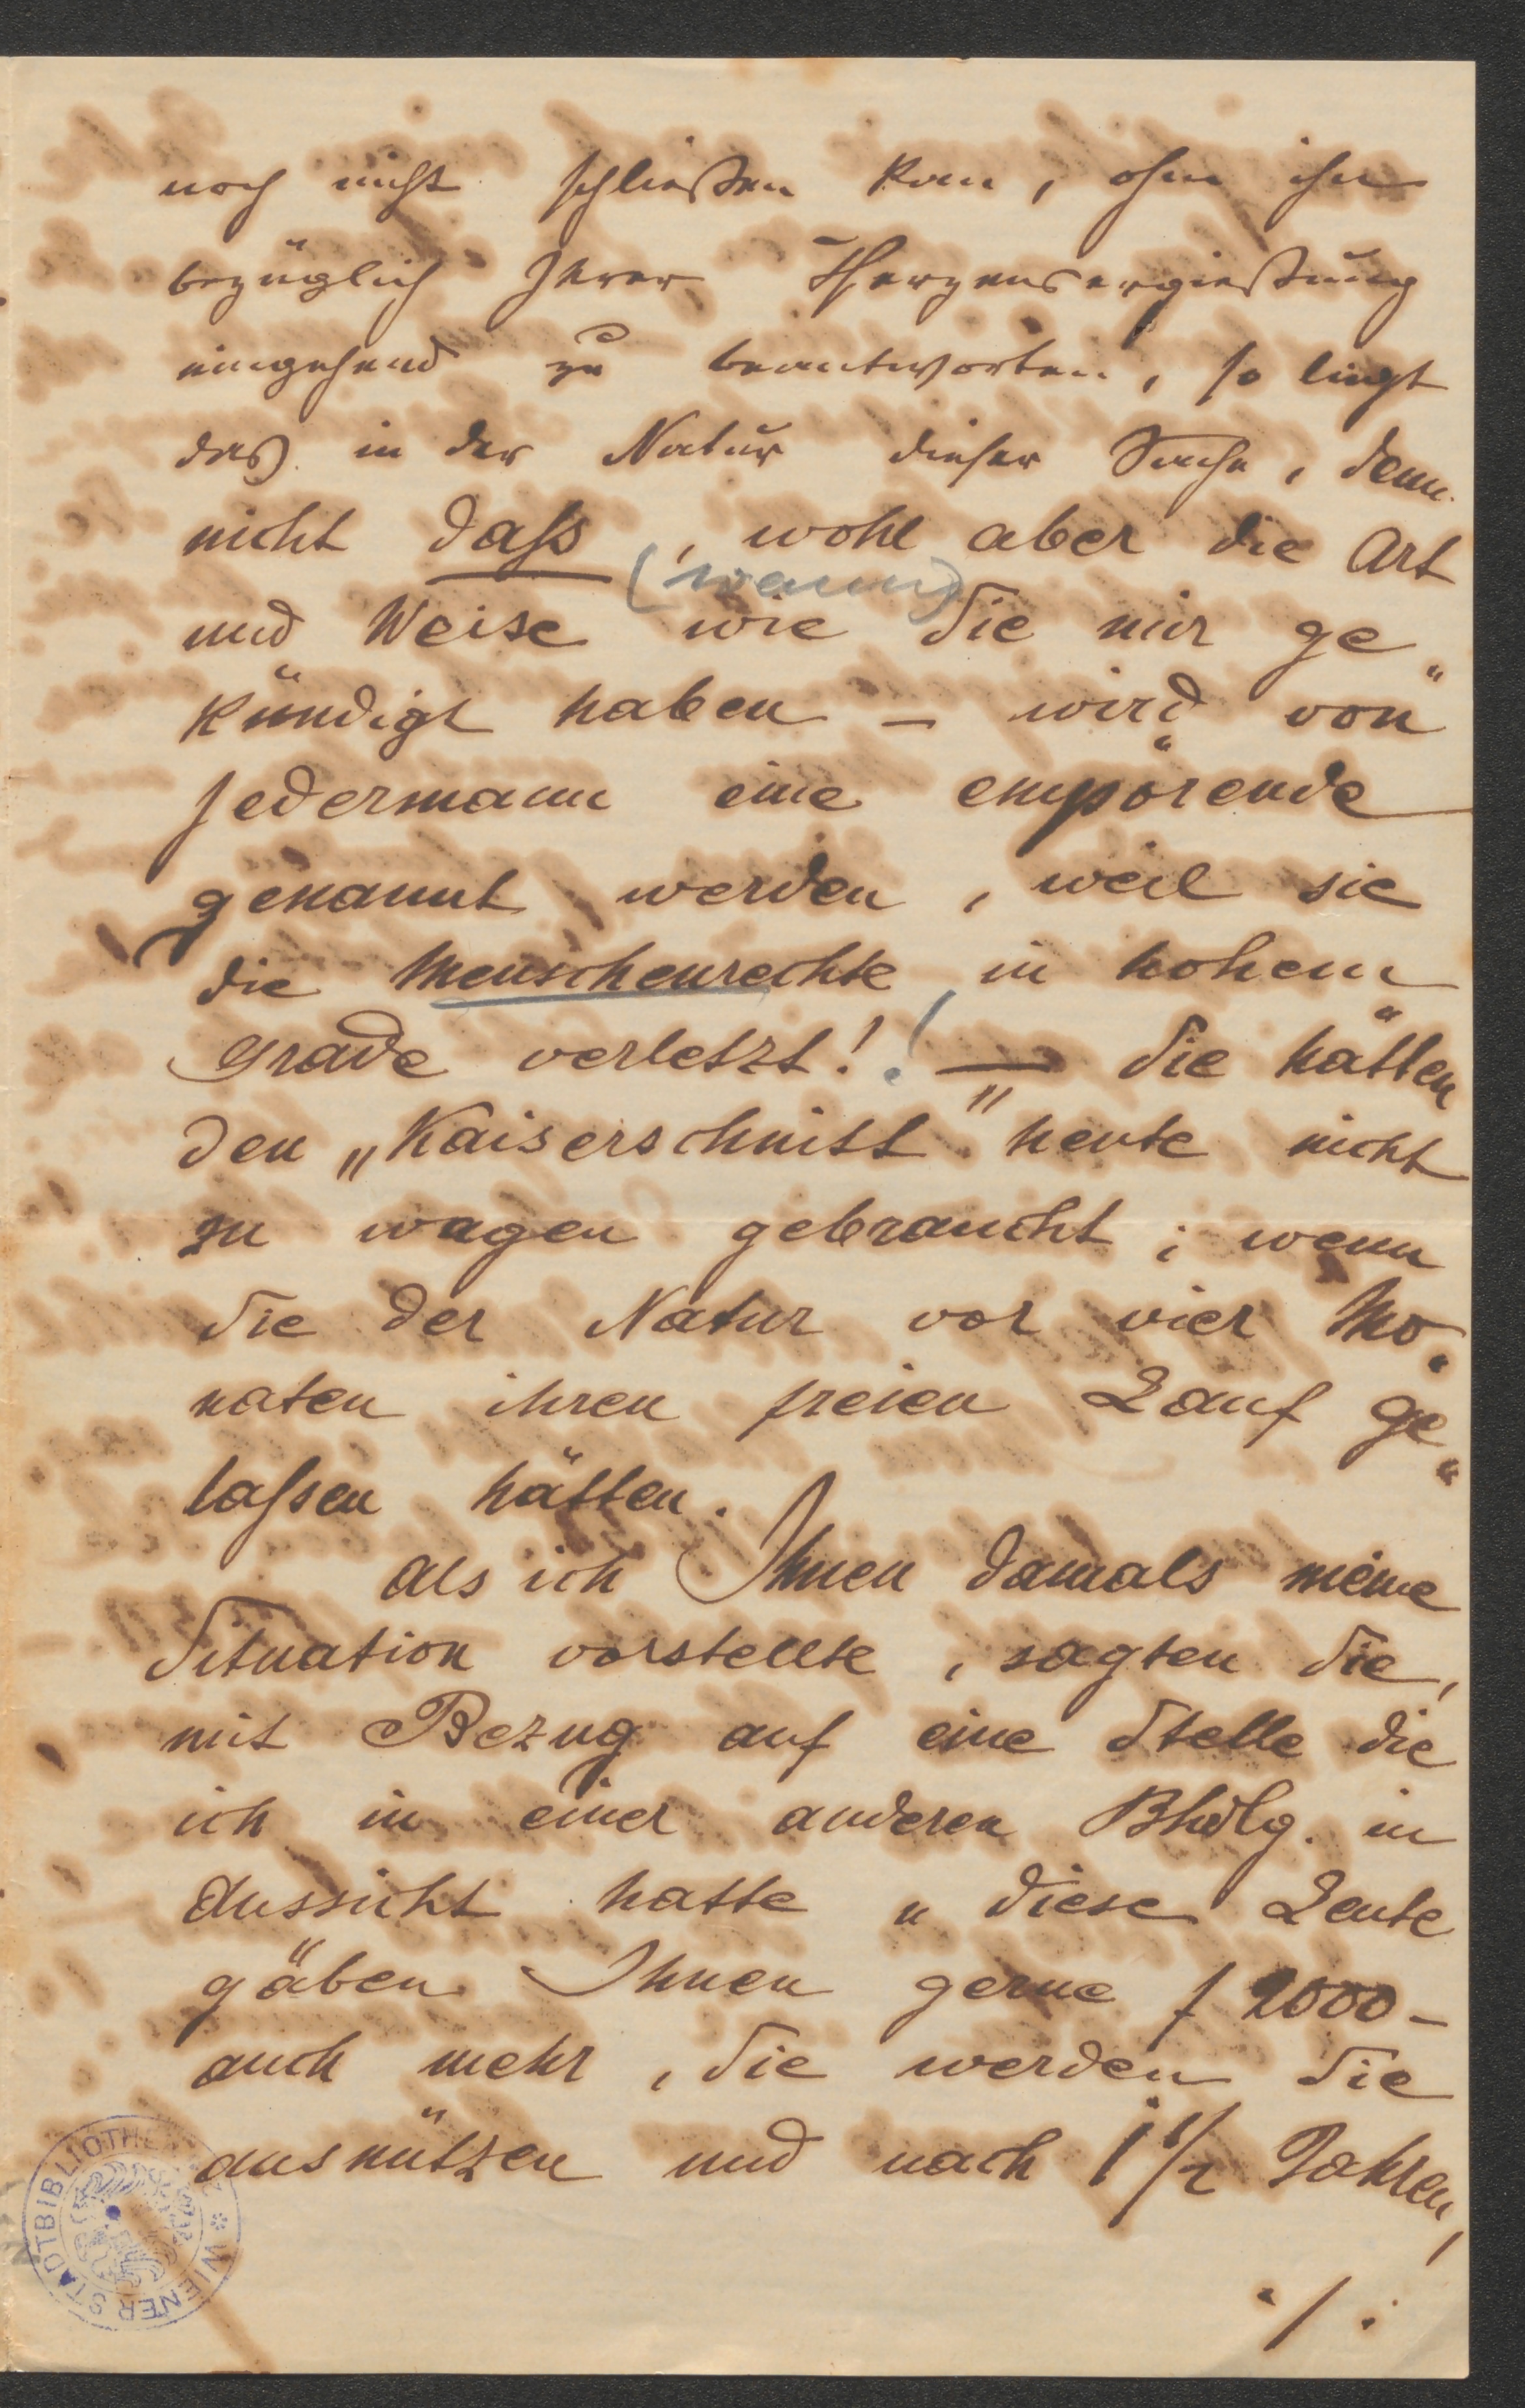 noch nicht schließen kan, ohne ihn
bezüglich Ihrer Herzensergießung
eingehend zu beantworten, so liegt
das in der Natur dieser Sache, denn
nicht daſs, wohl aber die Art
(wann)
und Weise wie Sie mir ge„
kündigt haben – wird von
Jedermann eine empörende
genannt werden, weil sie
die Menschenrechte in hohem
Grade verletzt!! — Sie hätten
den „Kaiserschnitt" heute nicht
zu wagen gebraucht; wenn
Sie der Natur vor vier Mo„
naten ihren freien Lauf ge„
laſsen hätten.
Als ich Ihnen damals meine
Situation vorstellte, sagten Sie,
mit Bezug auf eine Stelle die
ich in einer anderen Bhdlg. in
Aussicht hatte „diese Leute
gäben Ihnen gerne f 2000–
auch mehr, Sie werden Sie
ausnützen und nach 1 1/2 Jahren,
./.
WIENER STADTBIBLIOTHEK